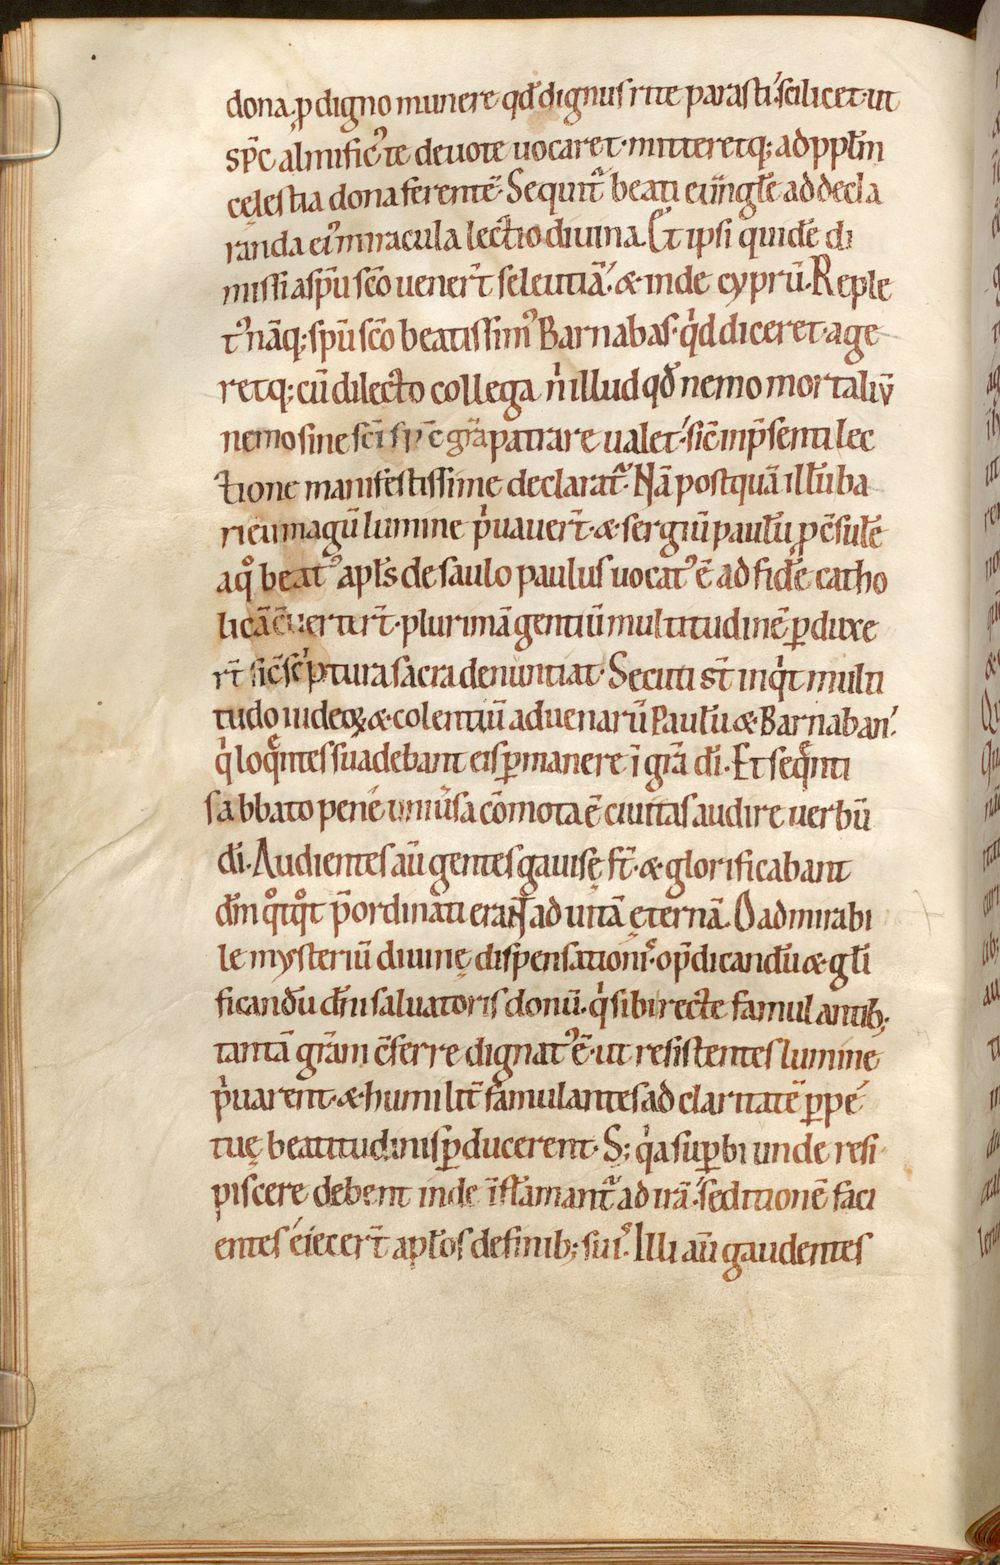 dona. ꝓ digno munere qđ dignus rite parasti. scilicet ut
sp̄c almific᾽ te deuote uocaret. mitteretq; ad ppłm
cęlestia dona ferentē. Sequit᷑ beati euangłę ad decla
randa ei᾽ miracula lectio diuina. Et ipsi quidē di
missi a sp̄u sc̄o uener̄t seleutiā. & inde cyprū. Reple
t᾽ nāq; sp̄u sc̄o beatissim᾽ Barnabas. qͥd diceret. age
retq; cū dilecto collega nͥ illud qđ nemo mortaliū
nemo sine sc̄i sp̄c gr̄a patrare ualet. sic̄ in p̄senti lec
tione manifestissime declarat᷑. Nā postquā illū ba
rieu magū lumine pͥuauer̄t. & sergiū paulū ꝓc̄sulē
a qͦ beat᾽ apłs de saulo paulus uocat᾽ ē ad fidē catho
licā c̄uertir̄t. plurimā gentiū multitudinē ꝑduxe
r̄t sic̄ scͥptura sacra denuntiat. Secuti st̄ inqͥt multi
tudo iudeoꝝ & colentiū aduenarū Paulū & Barnaban.
qͥ loqᷓntes suadebant eis ꝑmanere ī gr̄a dī. Et seqᷓnti
sabbato pene uniūsa cōmota ē ciuitas audire uerbū
dī. Audientes aū gentes gauisę st̄. & glorificabant
dn̄m qͦtqͦt p̄ordinati erant ad uitā ęternā. O admirabi
le mysteriū diuinę dispensationi᾽. o p̄dicandū & głi
ficandū dn̄i saluatoris donū. qͥ sibi recte famulantib;
tantā gr̄am c̄ferre dignat᾽ ē. ut resistentes lumine
pͥuarent. & humilit̄ famulantes ad claritatē ꝑpe
tuę beatitudinis ꝑducerent. S; qͥa supꝑbi unde resi
piscere debent inde īflamant᷑ ad irā. seditionē faci
entes eiecer̄t apłos de finib; sui᾽. Illi aū gaudentes